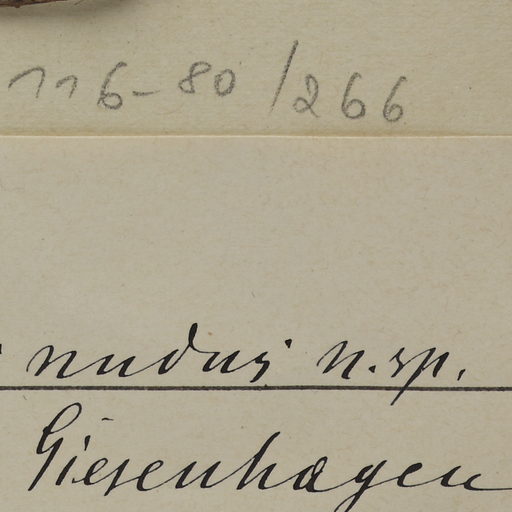 116-80/266
nudus n. sp.
Giesenhagen